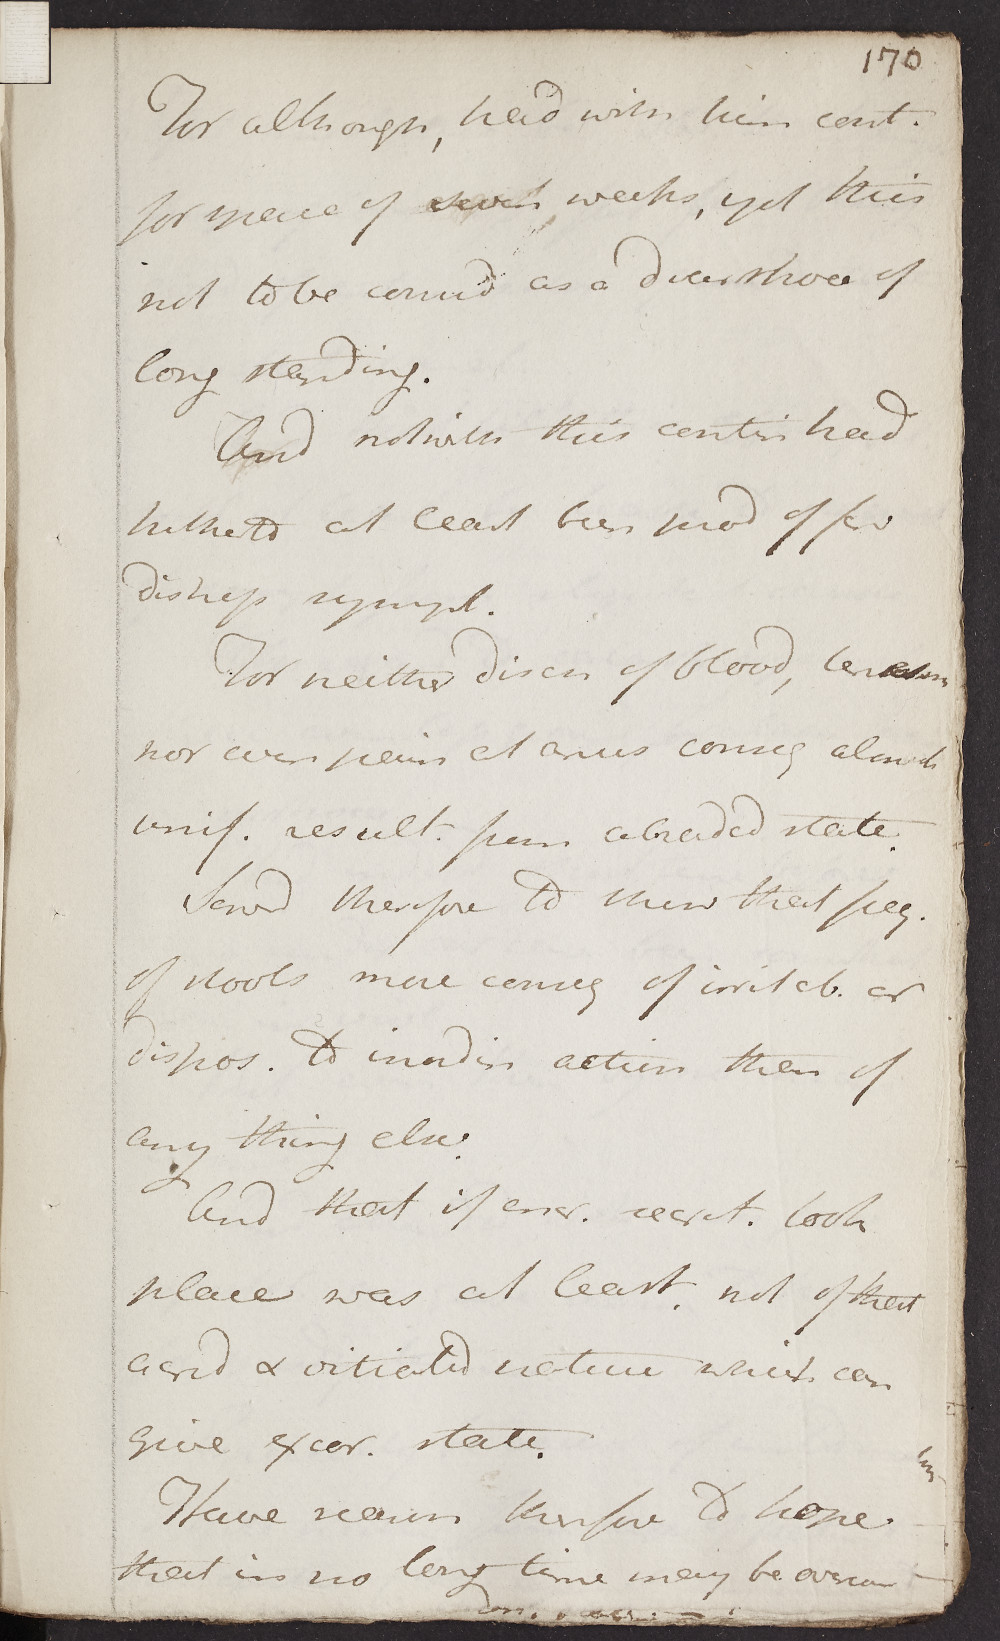 170
For although, head with him cont.
for space of seven weeks, yet this
not to be consid as a diarrhoea of
long standing.
And notwith this contin head
hitherto at least been prod of few
distress sympt.
For neither disch of blood, tenesm
nor even pain at anus conseq almost
unif. result. from abraded state.
Serv'd therefore to shew that freq.
of stools more conseq of irritab. or
dispos. to inordin action than of
any thing else.
And that if encr. secret. took
place was at least not of that
acrid & vitiated nature which can
give excor. state.
Have reason therefore to hope
that in no long time may be overcom